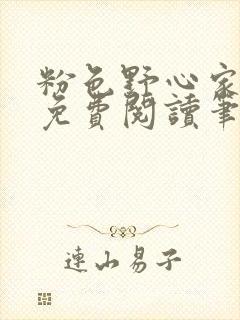 粉色野心家
免費閱讀筆
連山易子